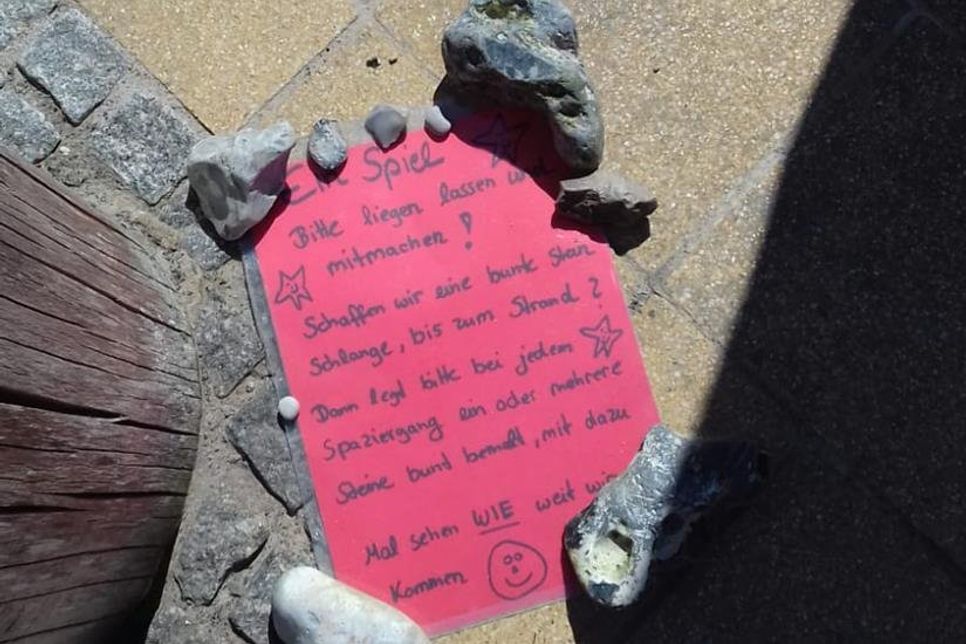 Ein Spiel
Bitte liegen lassen u
mitmachen !
Schaffen wir eine bunte Stein
Schlange, bis zum Strand ?
Dann legt bitte bei jedem
Spaziergang ein oder mehrere
Steine bunt bemalt, mit dazu
Mal sehen WIE weit wir
Kommen